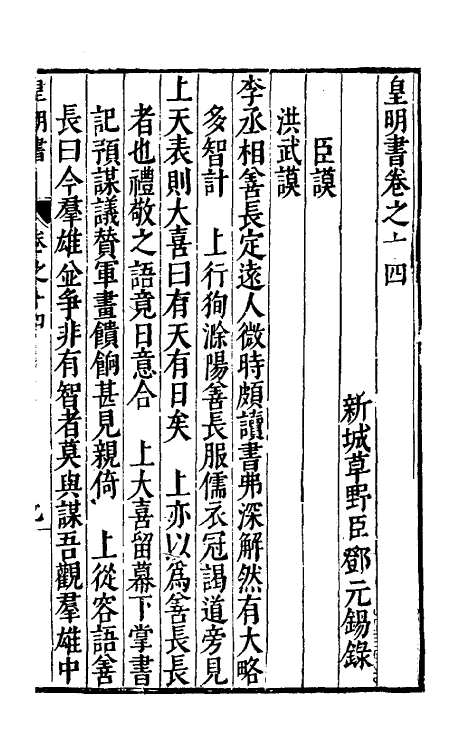 皇明書卷之十四
新城草野臣鄧元錫錄
臣謨
洪武謨
李丞相善長定遠人微時頗讀書弗深解然有大略
多智計　上行狥滁陽善長服儒衣冠謁道旁見
上天表則大喜曰有天有日矣　上亦以爲善長長
者也禮敬之語竟日意合　上大喜留幕下掌書
記預謀議贊軍畫饋餉甚見親倚　上從容語善
長曰今羣雄並爭非有智者莫與謀吾觀羣雄中
皇明書　卷之十四